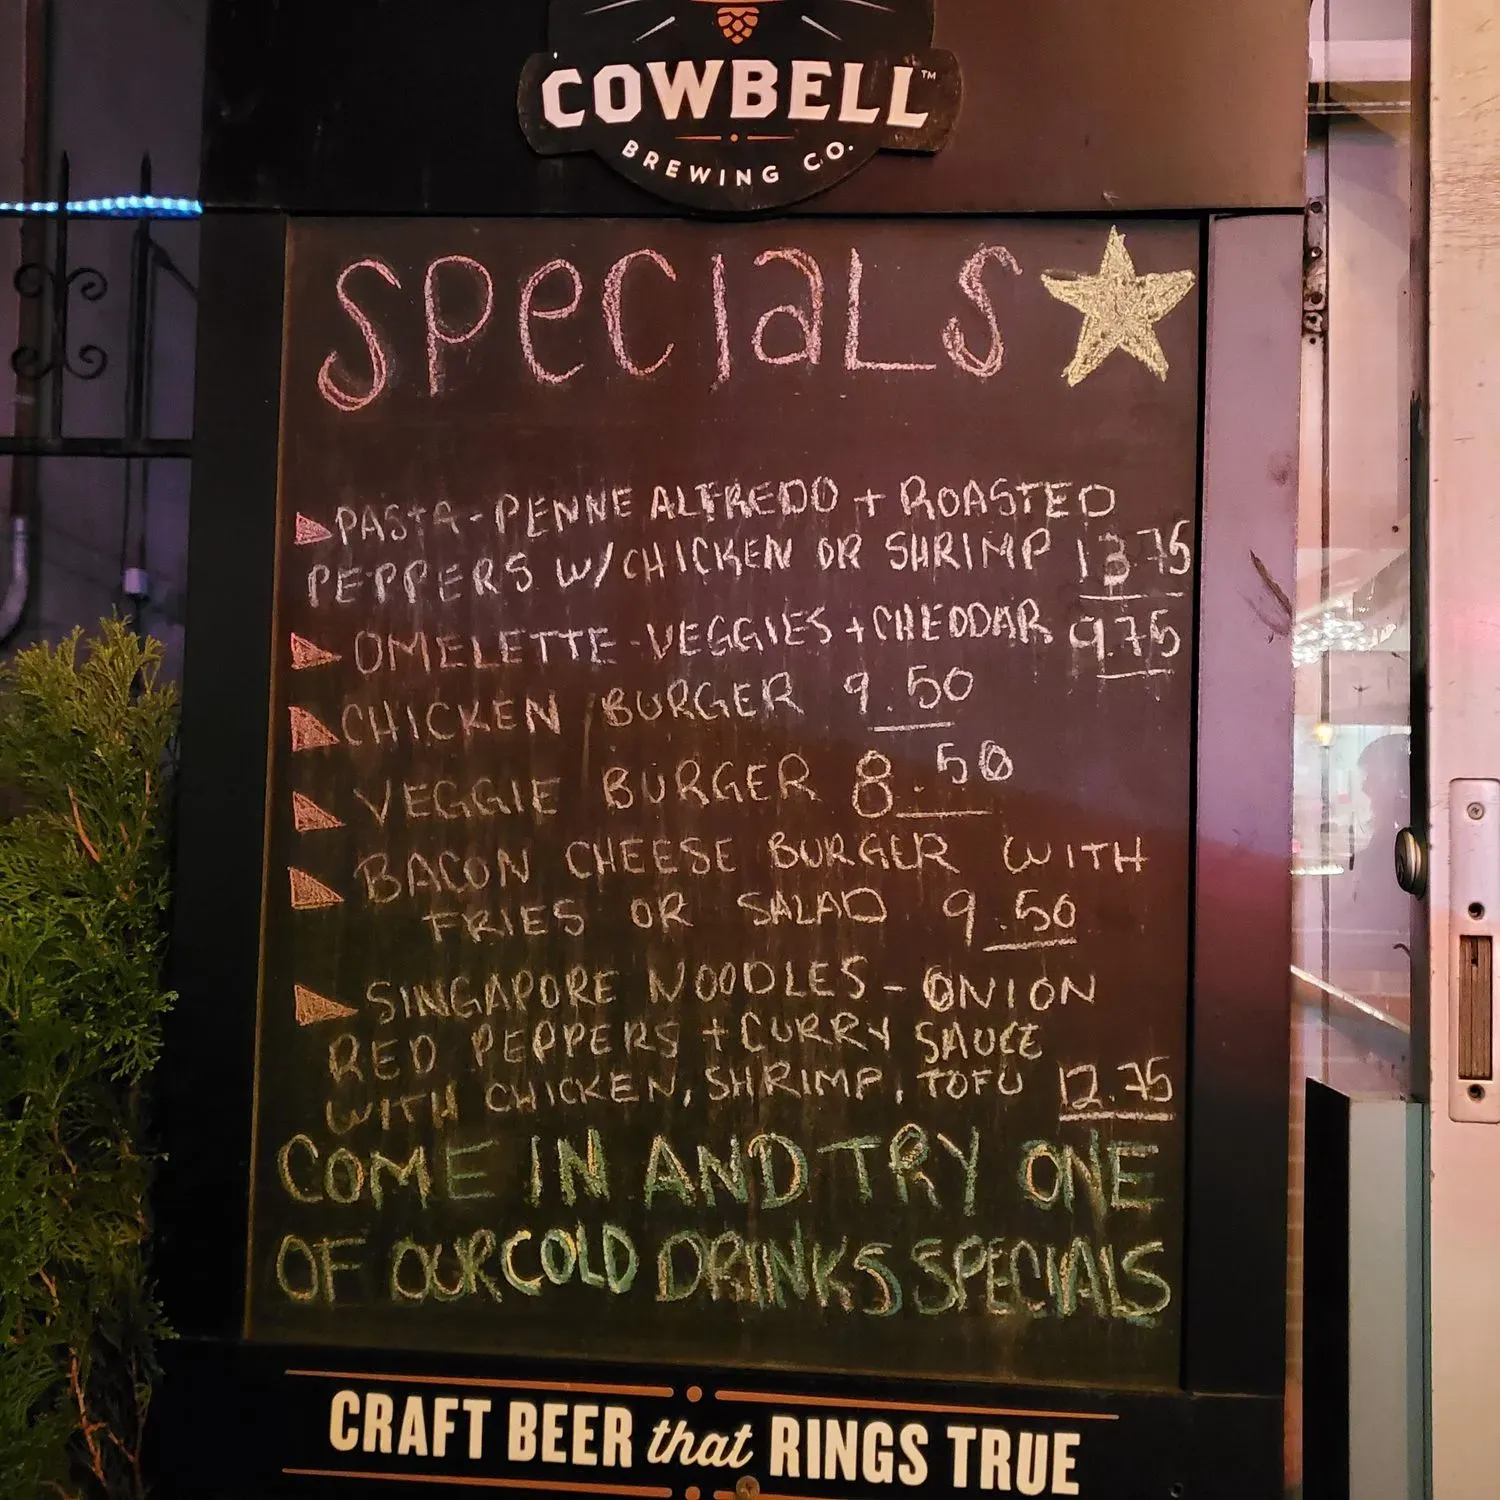 COWBELL™
BREWING CO.
SPECIALS
PASTA-PENNE ALFREDO + ROASTED
PEPPERS W/CHICKEN OR SHRIMP 13.75
OMELETTE-VEGGIES+CHEDDAR 9.75
CHICKEN BURGER 9.50
VEGGIE BURGER 8.50
BACON CHEESE BURGER WITH
FRIES OR SALAD 9.50
SINGAPORE NOODLES-ONION
RED PEPPERS + CURRY SAUCE
WITH CHICKEN, SHRIMP, TOFU 12.75
COME IN AND TRY ONE
OF OUR COLD DRINKS SPECIALS
CRAFT BEER that RINGS TRUE